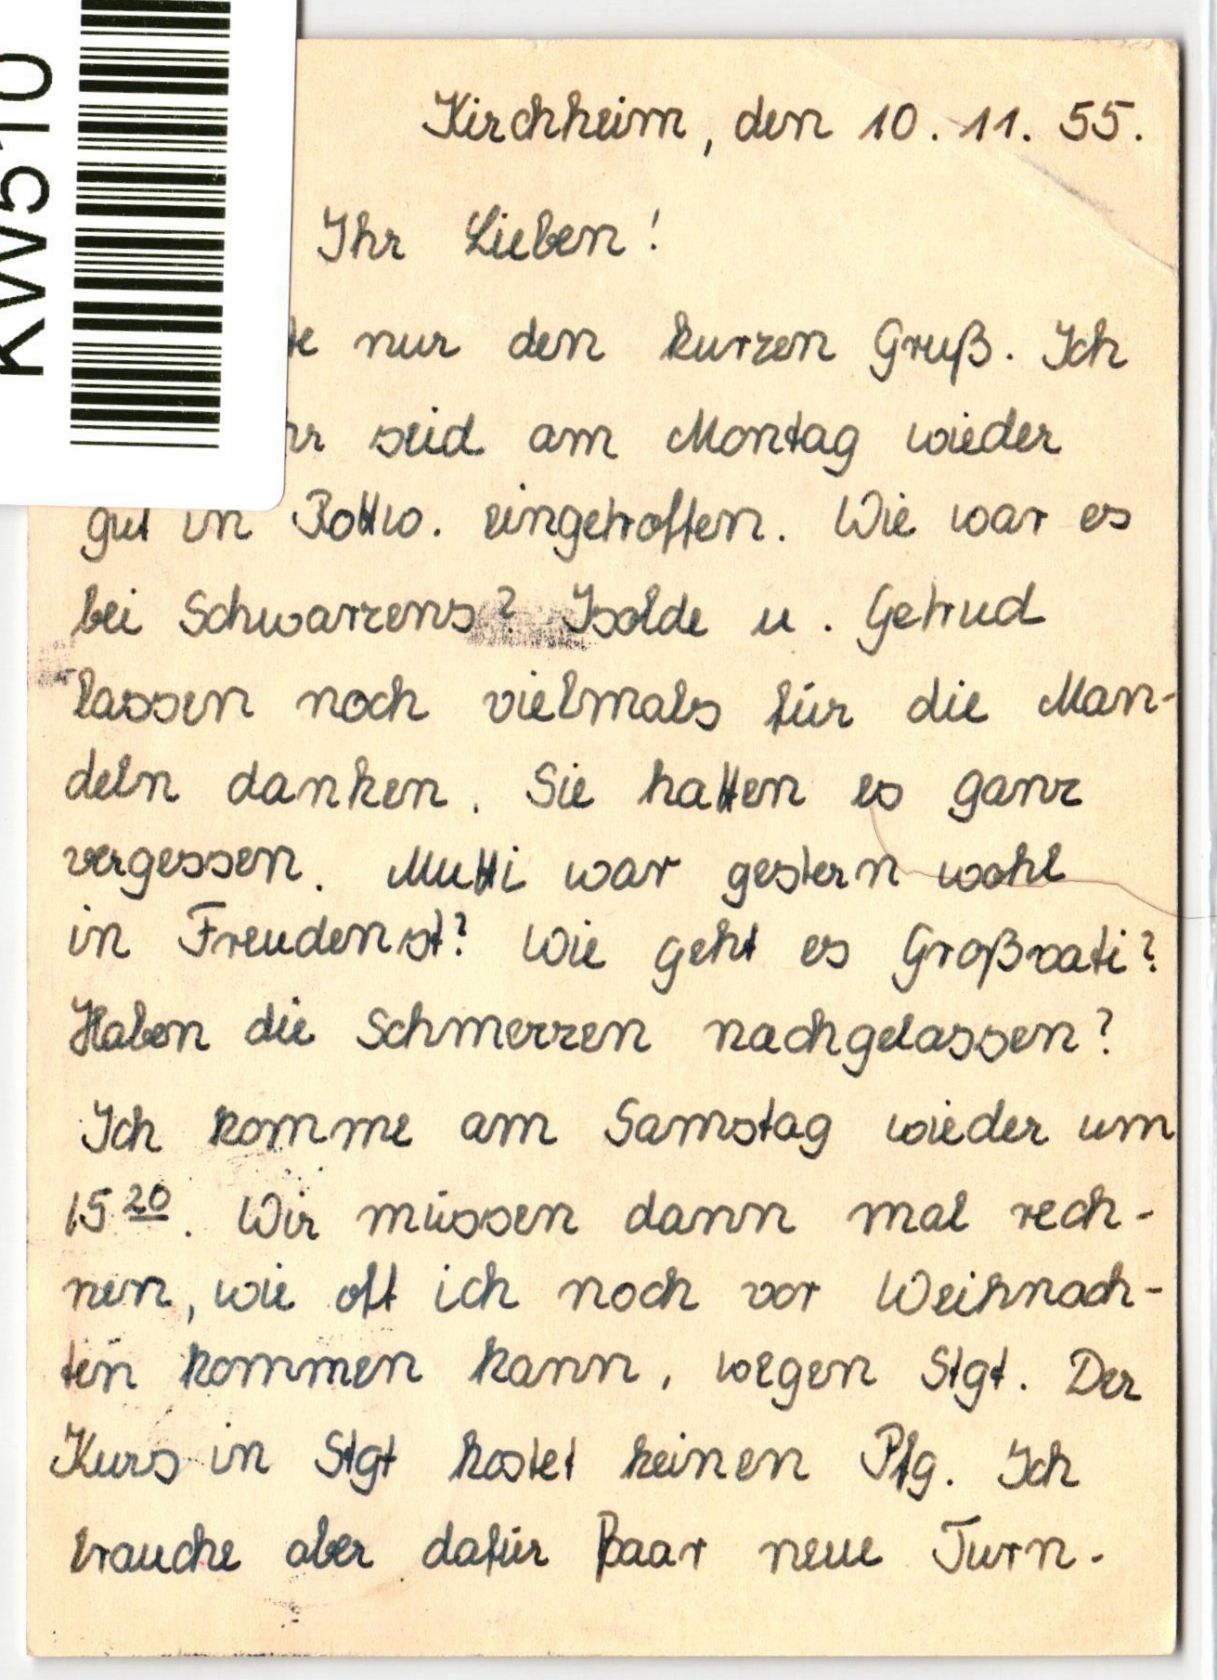 KW510
Kirchheim, den 10. 11. 55.
Ihr Lieben!
nur den kurzen Gruß. Ich
seid am Montag wieder
gut in Rottw. eingetroffen. Wie war es
bei Schwarzens? Isolde u. Getrud
lassen noch vielmals für die Man-
deln danken. Sie hatten es ganz
vergessen. Mutti war gestern wohl
in Freudenst? Wie geht es Großvati?
Haben die Schmerzen nachgelassen?
Ich komme am Samstag wieder um
15 20. Wir müssen dann mal rech-
nen, wie oft ich noch vor Weihnach-
ten kommen kann, wegen Stgt. Der
Kurs in Stgt kostet keinen Pfg. Ich
brauche aber dafür Paar neue Turn-